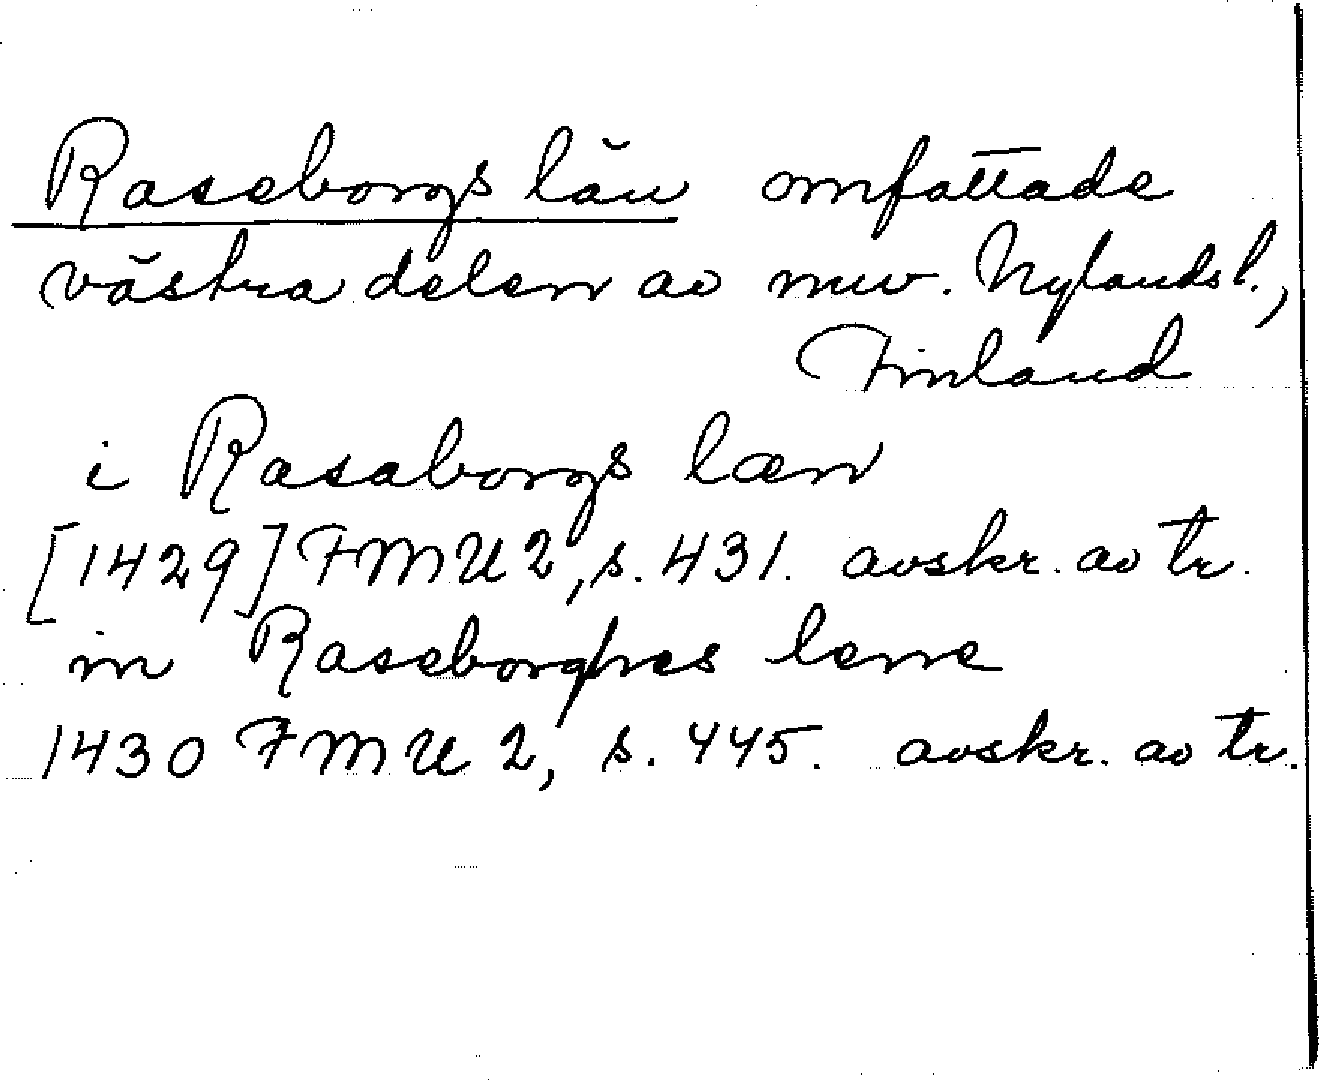 Raseborgs län omfattade
västra delen av nuv. Nylands l.,
Finland
i Rasaborgs læn
[1429] FMU 2, s. 431. avskr. av tr.
in Raseborghes lene
1430 FMU 2, s. 445. avskr. av tr.